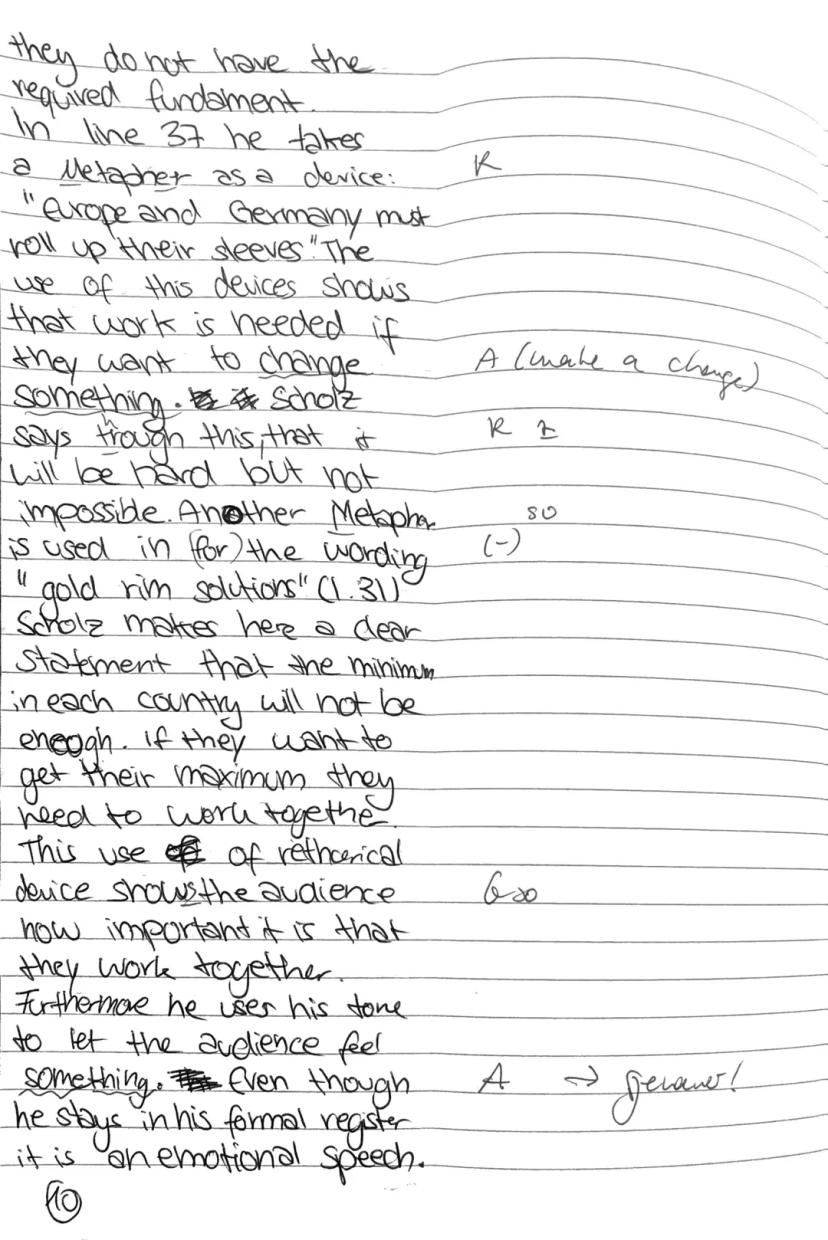 they do not have the
required fundament.
In line 37 he takes
a Metapher as a device: R
"Europe and Germany must
roll up their sleeves". The
use of this devices shows
that work is needed if
they want to change A (make a change)
something. Scholz
says trough this, that it R Z
will be hard but not
impossible. Another Metapher so
is used in (for) the wording (-)
"gold rim solutions" (l. 31)
Scholz makes here a clear
statement that the minimum
in each country will not be
enough. If they want to
get their maximum they
need to work togethe
This use of rethorical
device shows the audience Gr
how important it is that
they work together.
Furthermore he uses his tone
to let the audience feel
something. Even though A → genauer!
he stays in his formal register
it is an emotional speech.
10